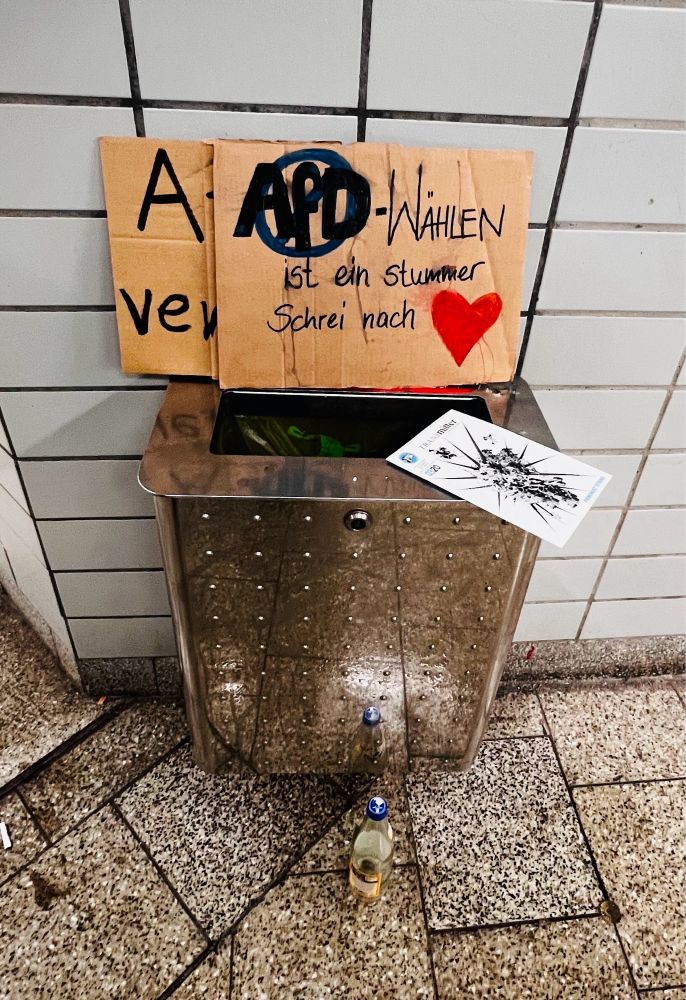 A
ver
AfD-WÄHLEN
ist ein stummer
Schrei nach
TRANSmitter
0120